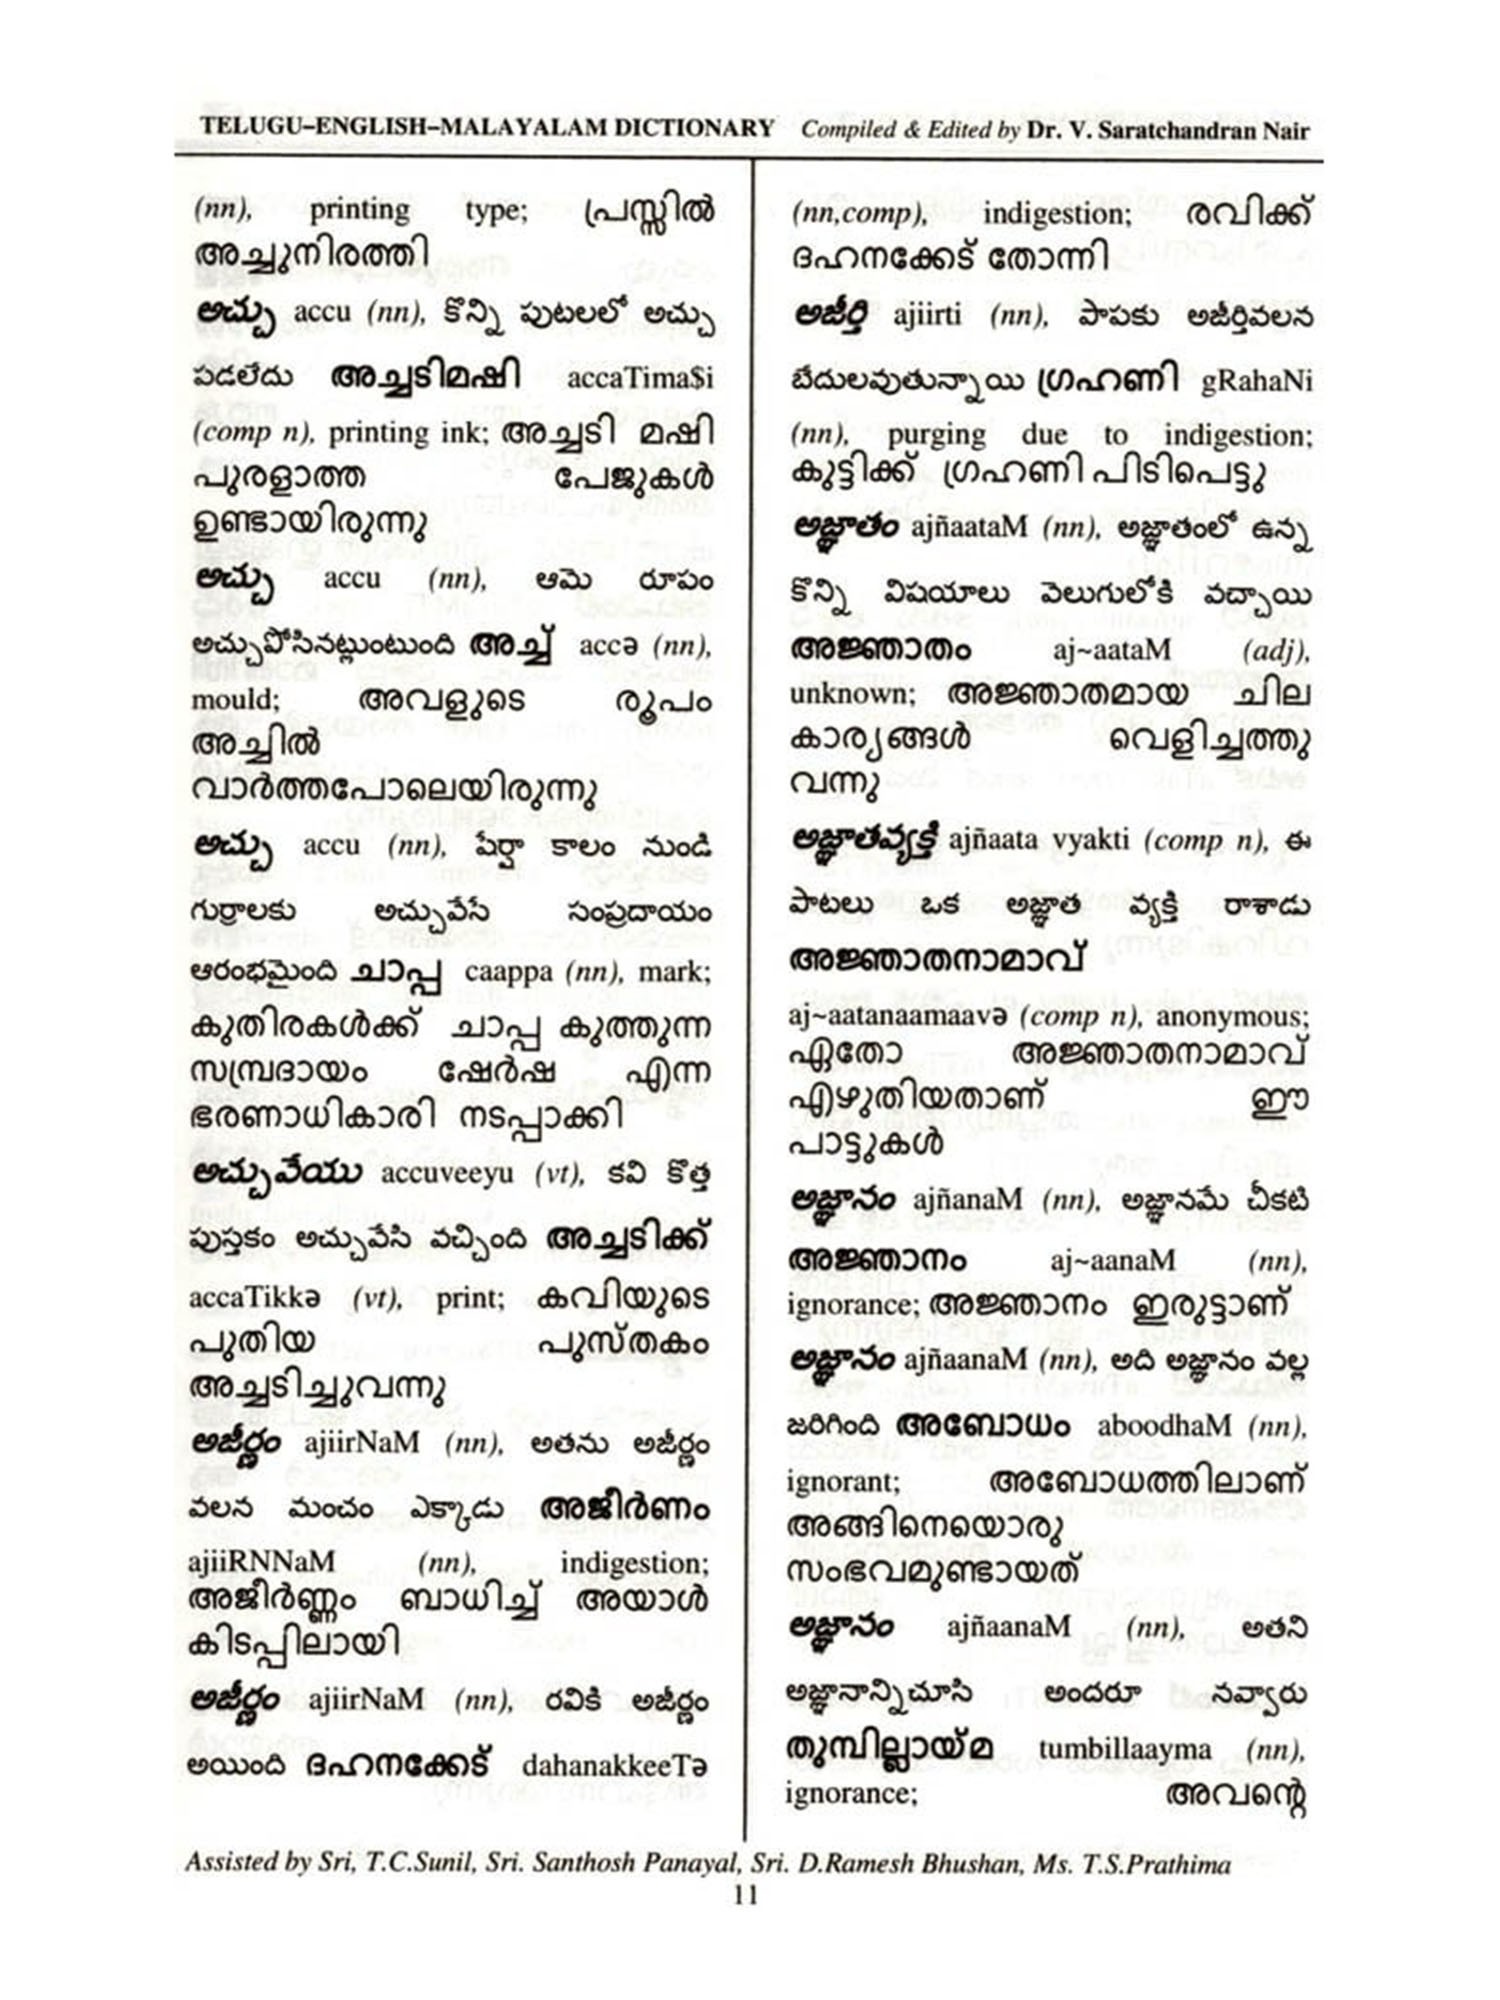 TELUGU–ENGLISH–MALAYALAM DICTIONARY Compiled & Edited by Dr. V. Saratchandran Nair
(nn), printing type; പ്രസ്സിൽ
അച്ചുനിരത്തി
అచ్చు accu (nn), కొన్ని పుటలలో అచ్చు
పడలేదు അച്ചടിമഷി accaTima$i
(comp n), printing ink; അച്ചടി മഷി
പുരളാത്ത പേജുകൾ
ഉണ്ടായിരുന്നു
అచ్చు accu (nn), ఆమె రూపం
అచ్చుపోసినట్లుంటుంది അച്ച് accə (nn),
mould; അവളുടെ രൂപം
അച്ചിൽ
വാർത്തപോലെയിരുന്നു
అచ్చు accu (nn), షేర్షా కాలం నుండి
గుర్రాలకు అచ్చువేసే సంప్రదాయం
ఆరంభమైంది ചാപ്പ caappa (nn), mark;
കുതിരകൾക്ക് ചാപ്പ കുത്തുന്ന
സമ്പ്രദായം ഷേർഷ എന്ന
ഭരണാധികാരി നടപ്പാക്കി
అచ్చువేయు accuveeyu (vt), కవి కొత్త
పుస్తకం అచ్చువేసి వచ్చింది അച്ചടിക്ക്
accaTikkə (vt), print; കവിയുടെ
പുതിയ പുസ്തകം
അച്ചടിച്ചുവന്നു
అజీర్ణం ajiirNaM (nn), అతను అజీర్ణం
వలన మంచం ఎక్కాడు അജീർണം
ajiiRNNaM (nn), indigestion;
അജീർണ്ണം ബാധിച്ച് അയാൾ
കിടപ്പിലായി
అజీర్ణం ajiirNaM (nn), రవికి అజీర్ణం
అయింది ദഹനക്കേട് dahanakkeeTə
(nn,comp), indigestion; രവിക്ക്
ദഹനക്കേട് തോന്നി
అజీర్తి ajiirti (nn), పాపకు అజీర్తివలన
బేదులవుతున్నాయి ഗ്രഹണി gRahaNi
(nn), purging due to indigestion;
കുട്ടിക്ക് ഗ്രഹണി പിടിപെട്ടു
అజ్ఞాతం ajñaataM (nn), అజ్ఞాతంలో ఉన్న
కొన్ని విషయాలు వెలుగులోకి వచ్చాయి
അജ്ഞാതം aj~aataM (adj),
unknown; അജ്ഞാതമായ ചില
കാര്യങ്ങൾ വെളിച്ചത്തു
വന്നു
అజ్ఞాతవ్యక్తి ajñaata vyakti (comp n), ఈ
పాటలు ఒక అజ్ఞాత వ్యక్తి రాశాడు
അജ്ഞാതനാമാവ്
aj~aatanaamaavə (comp n), anonymous;
ഏതോ അജ്ഞാതനാമാവ്
എഴുതിയതാണ് ഈ
പാട്ടുകൾ
అజ్ఞానం ajñanaM (nn), అజ్ఞానమే చీకటి
അജ്ഞാനം aj~aanaM (nn),
ignorance; അജ്ഞാനം ഇരുട്ടാണ്
అజ్ఞానం ajñaanaM (nn), అది అజ్ఞానం వల్ల
జరిగింది അബോധം aboodhaM (nn),
ignorant; അബോധത്തിലാണ്
അങ്ങിനെയൊരു
സംഭവമുണ്ടായത്
అజ్ఞానం ajñaanaM (nn), అతని
అజ్ఞానాన్నిచూసి అందరూ నవ్వారు
തുമ്പില്ലായ്മ tumbillaayma (nn),
ignorance; അവന്റെ
Assisted by Sri, T.C.Sunil, Sri. Santhosh Panayal, Sri. D.Ramesh Bhushan, Ms. T.S.Prathima
11